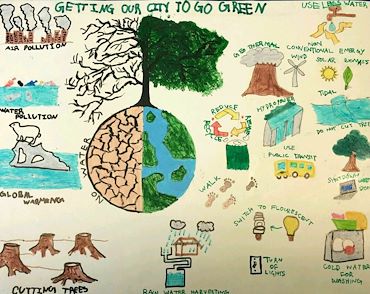 GETTING OUR CITY TO GO GREEN
USE LESS WATER
AIR POLLUTION
NON
CONVENTIONAL ENERGY
GEOTHERMAL
WIND
SOLAR
BIOMASS
WATER
POLLUTION
HYDROPOWER
TIDAL
REDUCE
REUSE
RECYCLE
DO NOT CUT TREES
NO WATER
USE
PUBLIC TRANSIT
GLOBAL
WARMING
WALK
SHUTDOWN
SWITCH TO FLUORESCENT
TURN OF
LIGHTS
COLD WATER
FOR
WASHING
CUTTING TREES
RAIN WATER HARVESTING